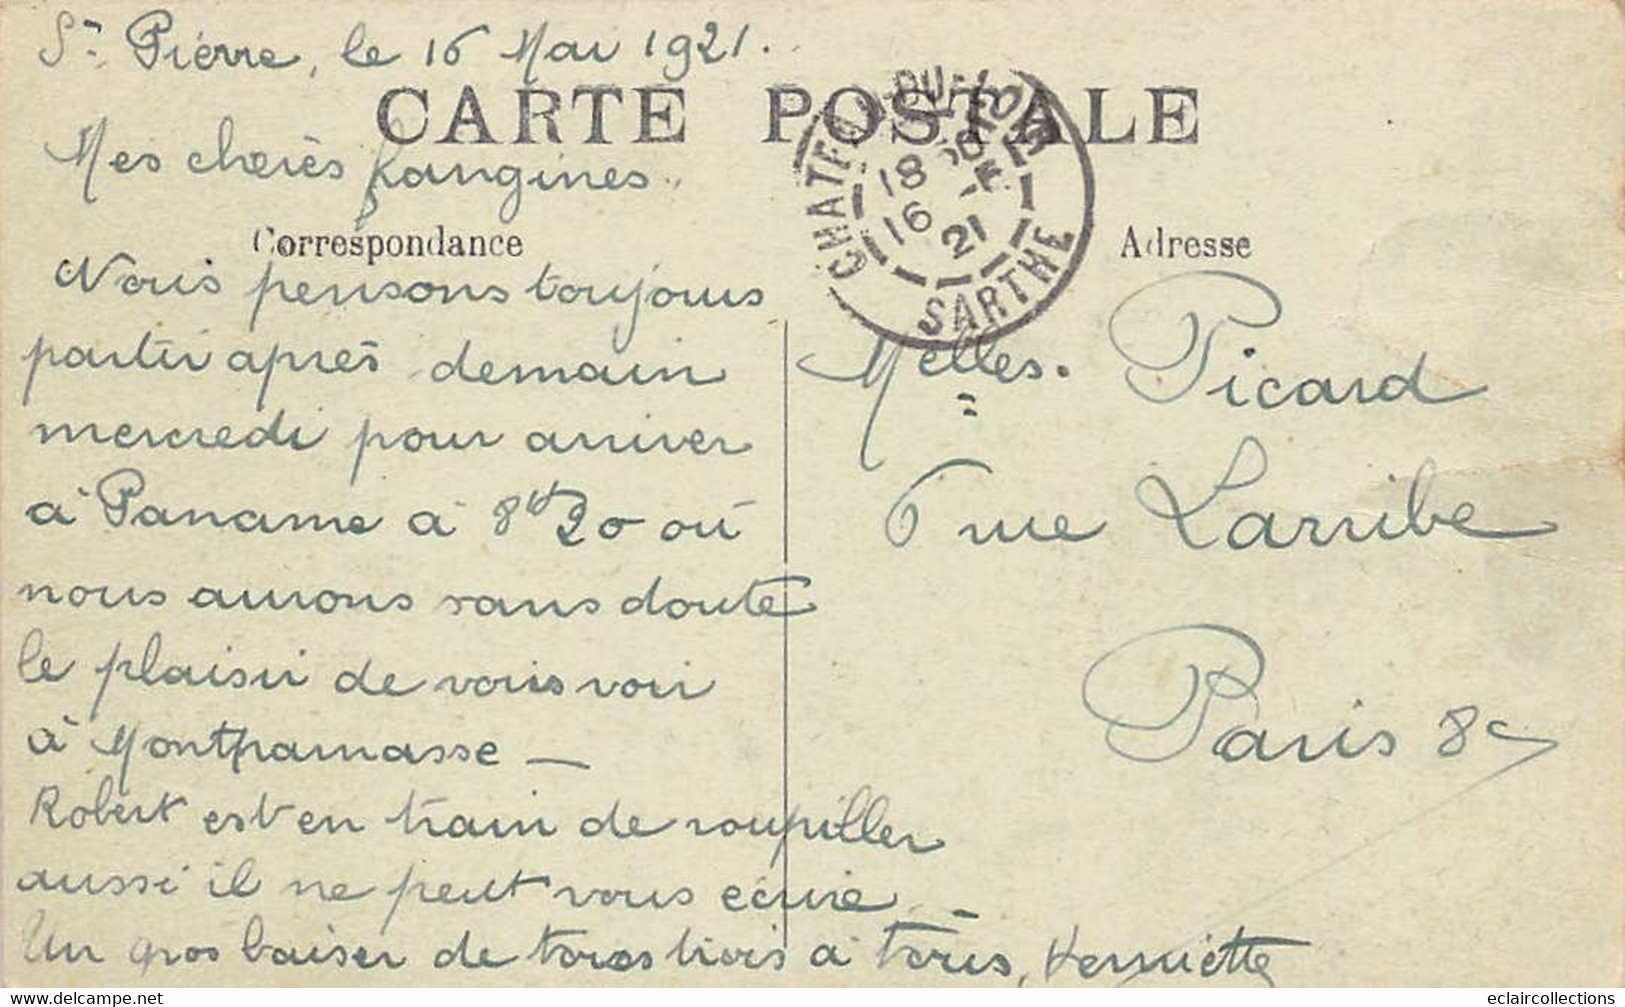 St Pierre, le 16 Mai 1921.
CARTE POSTALE
Mes chères frangines.
Correspondance
Nous pensons toujours
partir après demain
mercredi pour arriver
à Paname à 8h20 où
nous aurons sans doute
le plaisir de vous voir
à Montparnasse —
Robert est en train de roupiller
aussi il ne peut vous écrire
Un gros baiser de tous trois à toutes, Henriette
CHATEAU-DU-LOIR
18
16 -5
21
SARTHE
Adresse
Melles. Picard
6 rue Larribe
Paris 8e
eclaircollections